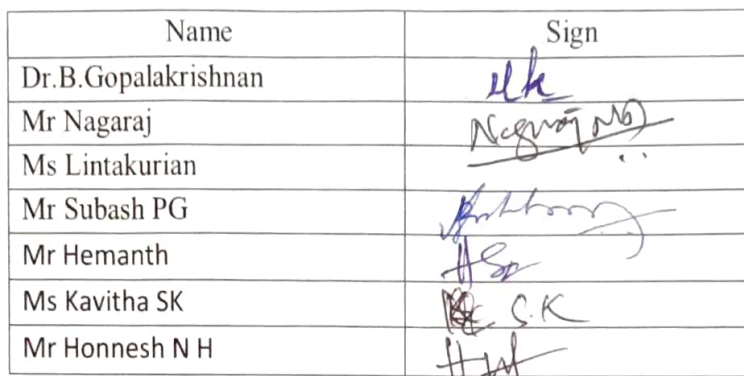 Name Sign
Dr.B.Gopalakrishnan
Mr Nagaraj
Ms Lintakurian
Mr Subash PG
Mr Hemanth
Ms Kavitha SK S.K
Mr Honnesh N H